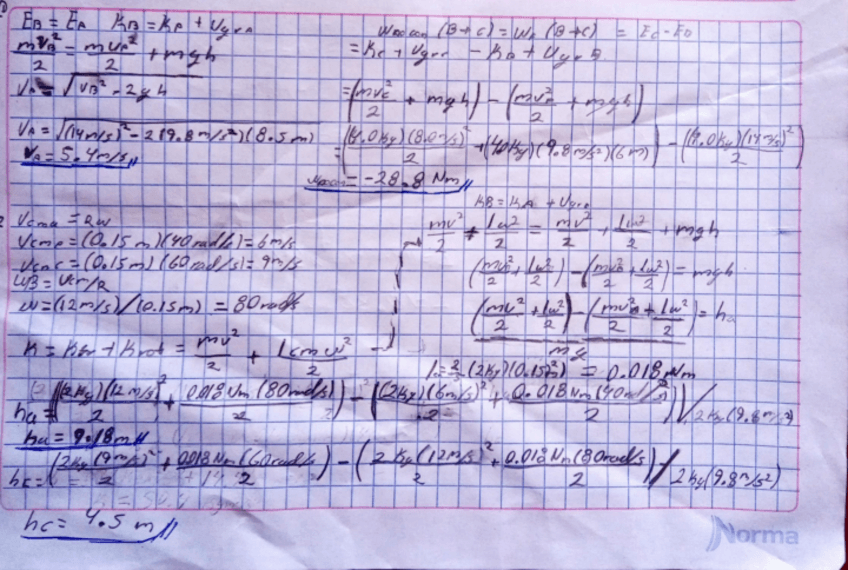 E_B = E_A   K_B = K_A + U_grA
mv_B²/2 = mv_A²/2 + mgh
v_A = √(v_B² - 2gh)
v_A = √((14m/s)² - 2(9.8m/s²)(8.5m))
v_A = 5.4m/s
(B→C) = W_F (B→C) = E_C - E_B
= K_C + U_grC - K_B + U_grB
= (mv_C²/2 + mgh) - (mv_B²/2 + mgh)
= ((4.0Kg)(8.0m/s)²/2 + (4.0Kg)(9.8m/s²)(6m)) - ((4.0Kg)(14m/s)²/2)
= -28.8 Nm
v_cmA = Rω
v_cmA = (0.15m)(40rad/s) = 6m/s
v_cmC = (0.15m)(60rad/s) = 9m/s
ω_B = v_cm/R
ω = (12m/s)/(0.15m) = 80rad/s
K = K_tr + K_rot = mv²/2 + I_cm ω²/2
K_B = K_A + U_grA
mv²/2 + Iω²/2 = mv²/2 + Iω²/2 + mgh
(mv_B²/2 + Iω²/2) - (mv_A²/2 + Iω²/2) = mgh
((mv²/2 + Iω²/2) - (mv_A²/2 + Iω²/2))/mg = h_a
(2Kg)(0.15m²) = 0.018Nm
h_a = (((2Kg)(12m/s)²/2 + 0.018Nm(80rad/s)/2) - ((2Kg)(6m/s)²/2 + 0.018Nm(40rad/s²)/2))/2Kg(9.8m/s²)
h_a = 9.18m
h_C = (2Kg(9m/s)²/2 + 0.018Nm(60rad/s)/2) - (2Kg(12m/s)²/2 + 0.018Nm(80rad/s)/2)/2Kg(9.8m/s²)
h_C = 4.5m
Norma